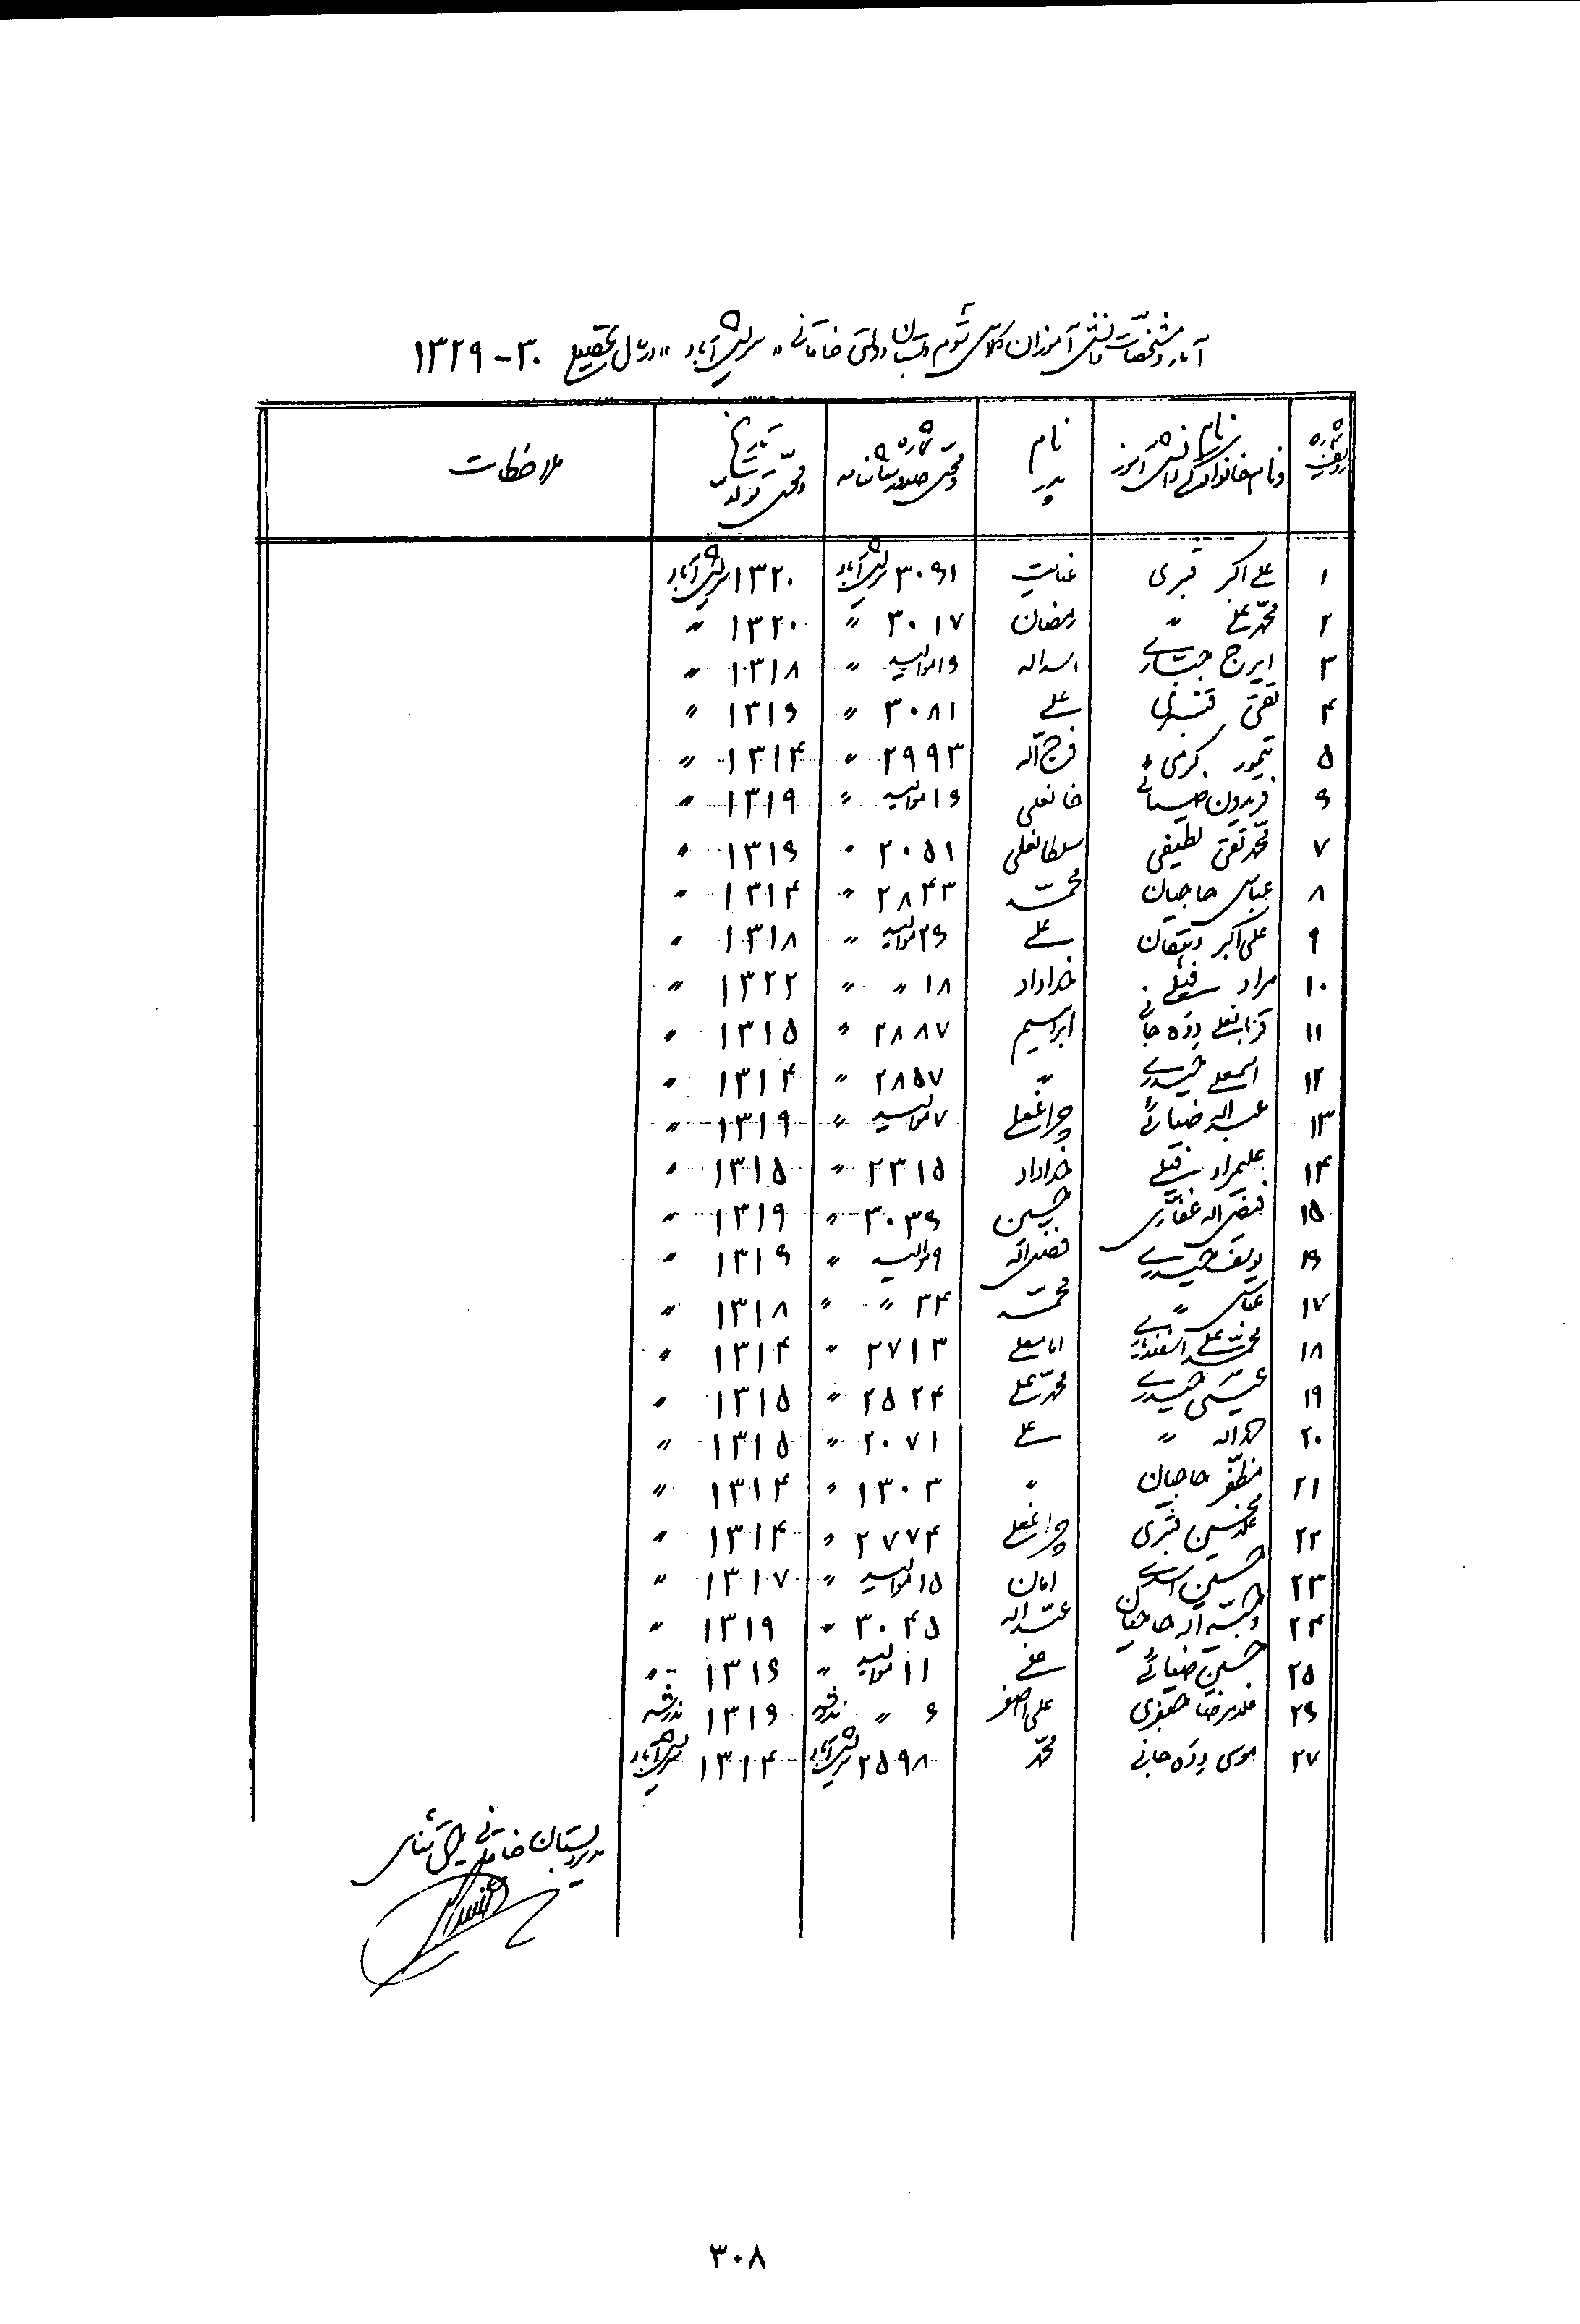 آمار و مشخصات دانش آموزان کلاس سوم دبستان دولتی خاقانی «سریش آباد» در سال تحصیلی ۳۰ - ۱۳۲۹
شماره ردیف نام و نام خانوادگی دانش آموز نام پدر شماره و محل صدور شناسنامه تاریخ و محل تولد ملاحظات
۱ علی اکبر قنبری عنایت ۳۰۶۱ سریش آباد ۱۳۲۰ سریش آباد
۲ محمدعلی " رمضان ۳۰۱۷ " ۱۳۲۰ "
۳ ایرج جباری اسداله ۱۶ موالید " ۱۳۱۸ "
۴ تقی قنبری علی ۳۰۸۱ " ۱۳۱۶ "
۵ تیمور کرمی فرج اله ۲۹۹۳ " ۱۳۱۴ "
۶ فریدون ضیائی خانعلی ۱۶ موالید " ۱۳۱۹ "
۷ محمدتقی لطیفی سلطانعلی ۲۰۵۱ " ۱۳۱۶ "
۸ عباس حاجیان محمد ۲۸۴۳ " ۱۳۱۴ "
۹ علی اکبر دهقان علی ۲۶ موالید " ۱۳۱۸ "
۱۰ مراد خداداد ۱۸ " " ۱۳۲۲ "
۱۱ قربانعلی دره جانی ابراهیم ۲۸۸۷ " ۱۳۱۵ "
۱۲ حیدری " ۲۸۵۷ " ۱۳۱۴ "
۱۳ عبداله ضیائی چراغعلی ۷ موالید " ۱۳۱۹ "
۱۴ علیمراد خداداد ۲۳۱۵ " ۱۳۱۵ "
۱۵ فیض اله غفاری حسین ۳۰۳۶ " ۱۳۱۹ "
۱۶ یوسف حیدری فضل اله ۹ موالید " ۱۳۱۶ "
۱۷ عباس " محمد ۳۴ " " ۱۳۱۸ "
۱۸ محمدعلی اسفندیاری امامعلی ۲۷۱۳ " ۱۳۱۴ "
۱۹ عیسی حیدری محمدعلی ۲۵۲۴ " ۱۳۱۵ "
۲۰ " علی ۲۰۷۱ " ۱۳۱۵ "
۲۱ مظفر حاجیان " ۱۳۰۳ " ۱۳۱۴ "
۲۲ محمدحسین چراغعلی ۲۷۷۴ " ۱۳۱۴ "
۲۳ حسین اسدی امان ۱۵ موالید " ۱۳۱۷ "
۲۴ وجیه اله حاجیان عبداله ۳۰۴۵ " ۱۳۱۹ "
۲۵ حسین ضیائی علی ۱۱ موالید " ۱۳۱۶ "
۲۶ غلامرضا جعفری علی اصغر ۶ " ۱۳۱۶
۲۷ موسی دره جانی محمد ۲۵۹۸ سریش آباد ۱۳۱۴ سریش آباد
مدیر دبستان خاقانی
۳۰۸